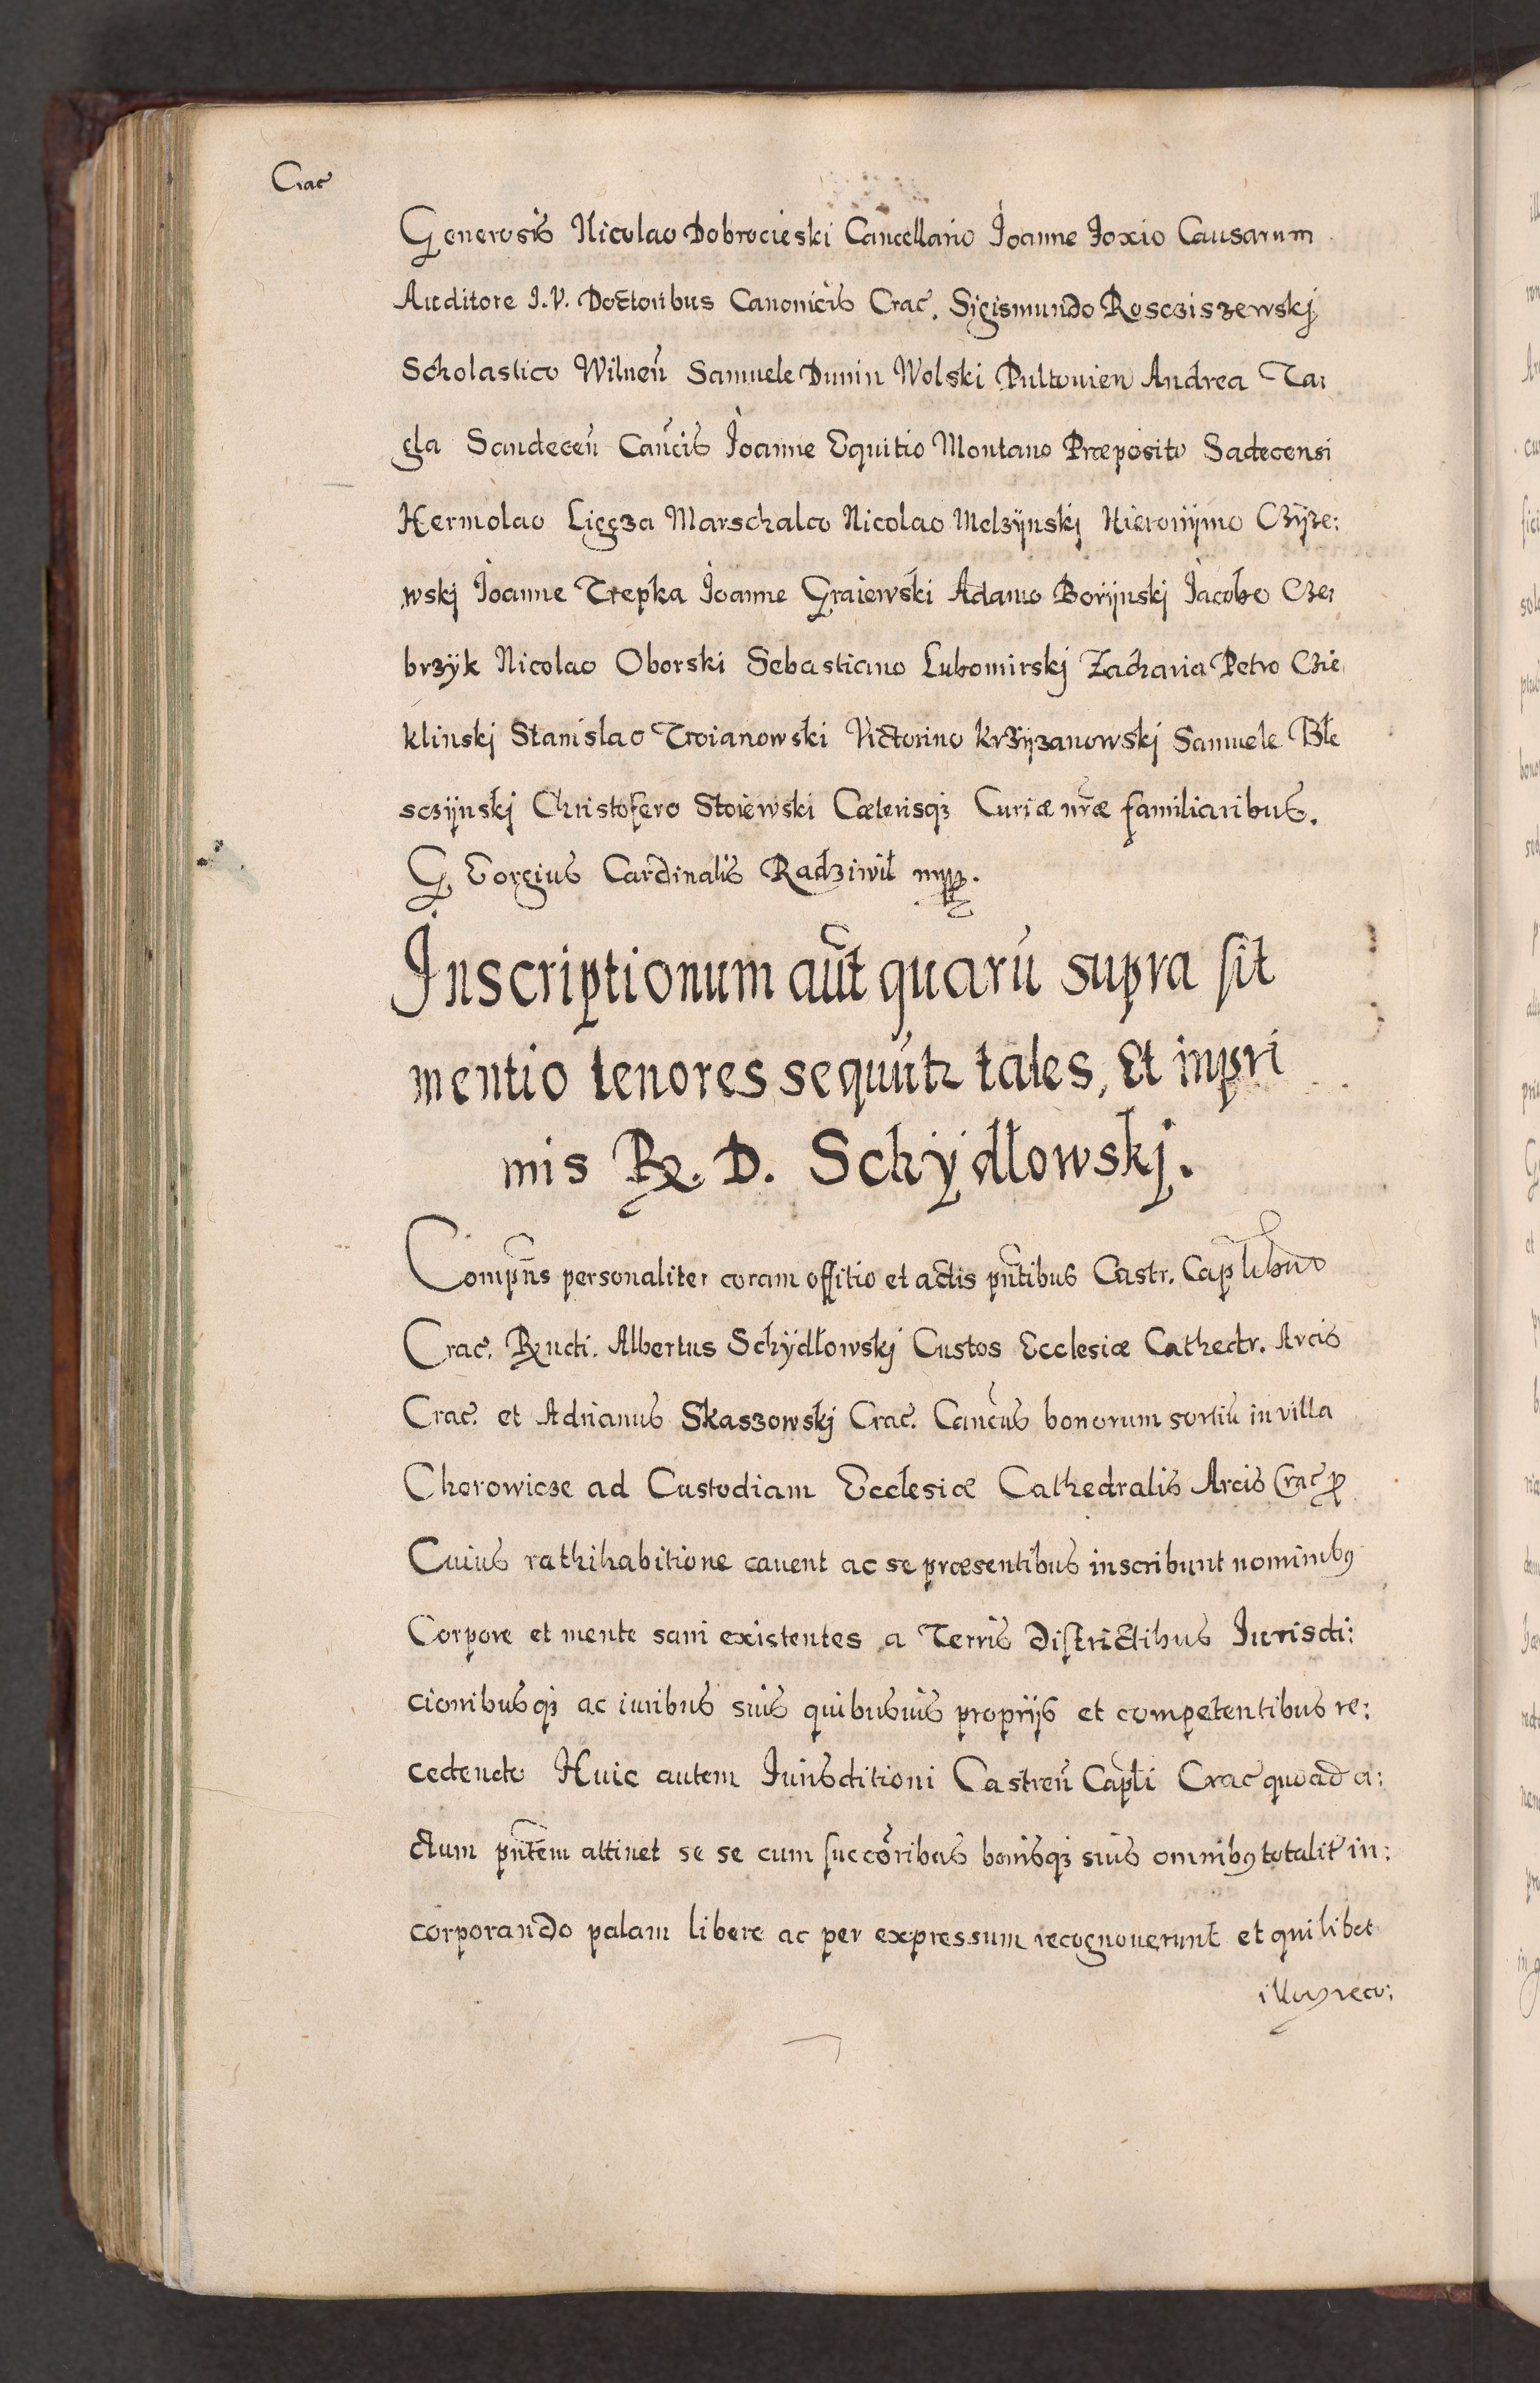 Crac̃
Generosis Nicolao Dobrocieski Cancellario Joanne Foxio Causarum
Auditore I.V. Doctoribus Canonicis Crac̃. Sigismundo Roscziszewskj
Scholastico Wilneñ Samuele Dunin Wolski Pultouien Andrea Ta:
gla Sandeceñ Cañcis Joanne Equitio Montano Præposito Sadecensi
Hermolao Ligęza Marschalco Nicolao Melzÿnskj Hieronÿmo Czÿże:
wskj Joanne Trepka Joanne Graiewski Adamo Borÿnskj Jacobo Cze:
brzÿk Nicolao Oborski Sebastiano Lubomirskj Zacharia Petro Czie
klinskj Stanislao Troianowski Victorino Krzÿzanowskj Samuele Błe
sczÿnskj Christofero Stoiewski Cæterisqȝ Curiæ nr̃æ familiaribus.
GEorgius Cardinalis Radziwił mpp.
Inscriptionum aũt quarũ supra fit
mentio tenores sequũtr tales, Et inpri
mis R. D. Schÿdłowskj.
Compñs personaliter coram offitio et actis pñtibus Castr.
Crac̃. Rndi. Albertus Schÿdłowskj Custos Ecclesiæ Cathedr. Arcis
Crac̃. et Adrianus Skaszowskj Crac̃. Cañcus bonorum sortiũ in villa
Chorowicze ad Custodiam Ecclesiæ Cathedralis Arcis Crac̃ ꝓ
Cuius rathihabitione cauent ac se præsentibus inscribunt nominibꝰ
Corpore et mente sani existentes a Terris districtibus Jurisdi:
cionibusqȝ ac iuribus suis quibusuis proprijs et competentibus re:
cedendo Huic autem Jurisditioni Castreñ Capłi Crac̃ quoad a:
ctum pñtem attinet se se cum succõribus bonisqȝ suis omnibꝰ totalit̃ in:
corporando palam libere ac per expressum recognouerunt et quilibet
illoꝝ reco: